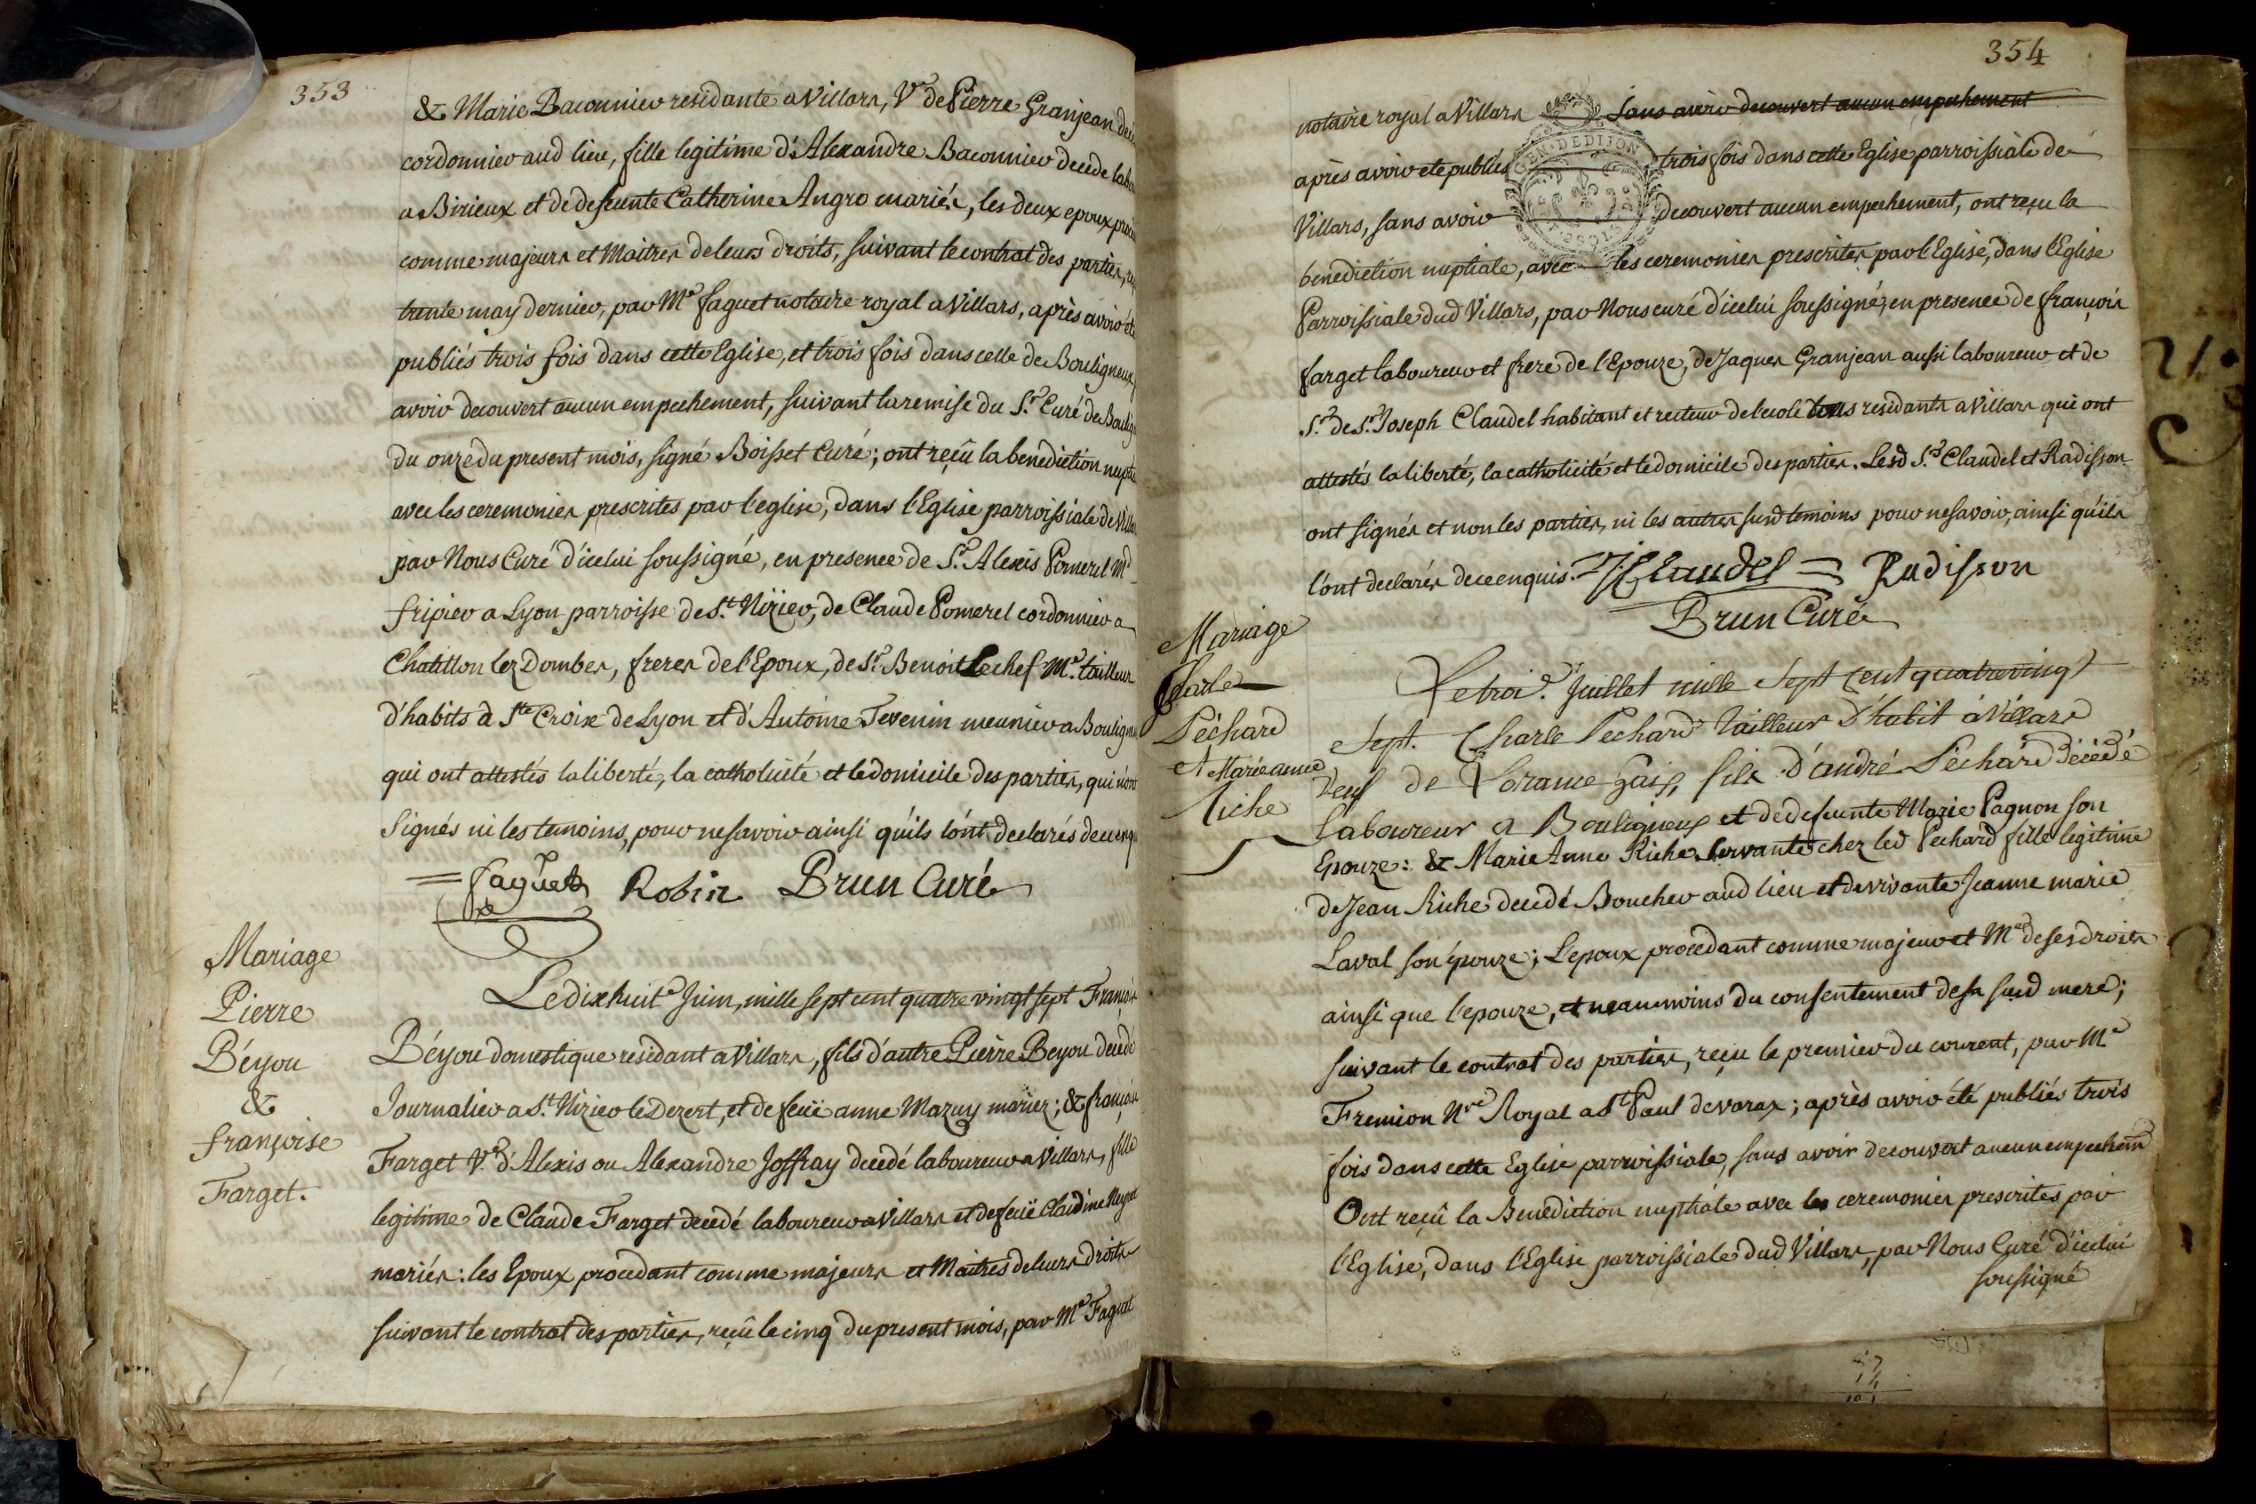 353
& Marie Baconnier residante a Villars, Ve de Pierre Granjean
cordonnier aud lieu, fille legitime d'Alexandre Baconnier decede
a Birieux et de defeunte Catherine Angro mariés, les deux epoux
comme majeurs et Maitres de leurs droits, suivant le contrat des parties,
trente may dernier, par Me faguet notaire royal a Villars, après avoir été
publiés trois fois dans cette Eglise, et trois fois dans celle de Bouligneux,
avoir decouvert aucun empechement, suivant la remise du Sr Curé de
du onze du present mois, signé Boisset Curé; ont reçû la benediction
avec les ceremonies prescrites par l'eglise, dans l'Eglise parroissiale de
par Nous Curé d'icelui soussigné, en presence de Sr Alexis Pomerel Md
fripier a Lyon parroisse de St Nizier, de Claude Pomerel cordonnier a
Chatillon lez Dombes, freres de l'Epoux, de Sr Benoit Lechef Me tailleur
d'habits à Ste Croix de Lyon et d'Antoine Tevenin meunier a
qui ont attestés la liberté, la catholicité et le domicile des parties, qui n'ont
Signés ni les temoins, pour ne savoir ainsi qu'ils l'ont declarés de ce
faguet Robin Brun Curé
Mariage
Pierre
Béyou
&
françoise
Farget.
Le dix huite Juin, mille sept cent quatre vingt sept François
Béyou domestique residant a Villars, fils d'autre Pierre Beyou decedé
Journalier a St Nizier le Dezert, et de feüe anne Mazuy mariez; & françoise
Farget Ve d'Alexis ou Alexandre Joffray decedé laboureur a Villars, fille
legitime de Claude Farget decedé laboureur a Villars et de feüe Claudine
mariés: les Epoux procedant comme majeurs et Maitres de leurs droits
suivant le contrat des parties, reçû le cinq du present mois, par Me Faguet
354
notaire royal a Villars sans avoir decouvert aucun empechement
après avoir eté publiés trois fois dans cette Eglise parroissiale de
GEN. DE DIJON
Villars, sans avoir decouvert aucun empechement, ont reçu la
benediction nuptiale, avec les ceremonies prescrites par l'Eglise, dans l'Eglise
Parroissiale dud Villars, par Nous curé d'icelui soussigné, en presence de françois
farget laboureur et frere de l'Epouze, de Jaques Granjean aussi laboureur et de
Sr de Sr Joseph Claudel habitant et recteur de l'ecole tous residants a Villars qui ont
attestés la liberté, la catholicité et le domicile des parties. Lesd Srs Claudel et Radisson
ont signés et non les parties, ni les autres susd temoins pour ne savoir, ainsi qu'ils
l'ont declarés de ce enquis. J Claudel Radisson
Brun Curé
Mariage
Charle
Péchard
et Marie anne
Riche
Le troi.e Juillet mille Sept Cent quatre vingt
Sept. Charle Pechard tailleur d'habit à Villars
veuf de, fils d'andré Péchard décédé
Laboureur a Bouligneux et de defeunte Marie Pagnon son
Epouze: & Marie Anne Riche servante chez led Pechard fille legitime
de Jean Riche decedé Boucher aud lieu et de vivante Jeanne marie
Laval son épouze; L'epoux procedant comme majeur et Me de ses droits
ainsi que l'epouze, et neanmoins du consentement de sa susd mere;
suivant le contrat des parties, reçu le premier du courent, par Me
Fremion Nre Royal a St Paul de varax; après avoir été publiés trois
fois dans cette Eglise parroissiale, sans avoir decouvert aucun empechem
Ont reçû la Benediction nuptiale avec les ceremonies prescrites par
l'Eglise, dans l'Eglise parroissiale dud Villars, par Nous Curé d'icelui
soussigné